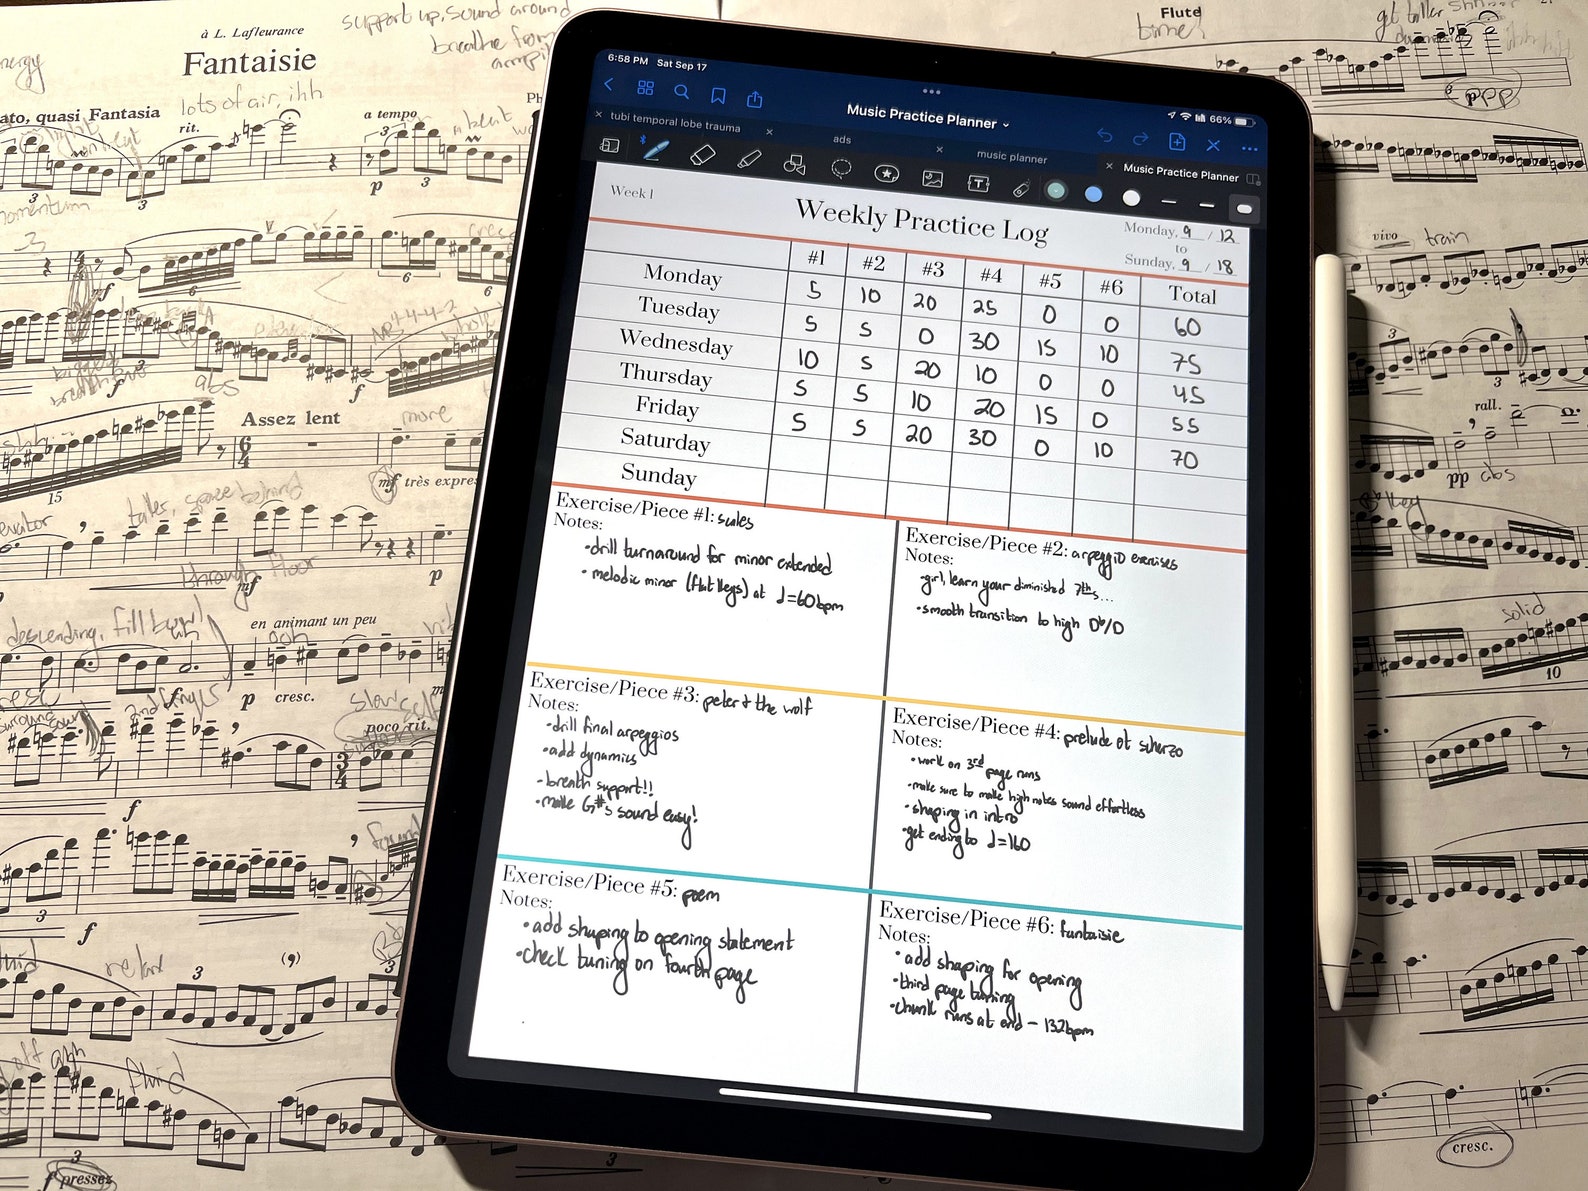 à L. Lafleurance
Fantaisie
support up, sound around
breathe from
lots of air, ihh
ato, quasi Fantasia
rit.
a tempo
p
3
3
3
momentum
6
6
mf
f
abs
Assez lent
more
15
mf très expres
taller, space behind
through floor
mf
p
descending, fill bowl
en animant un peu
ooh
p cresc.
poco rit.
f
3
f
relax
3
(,)
3
fluid
3
f pressez
3
Flute
time!
get taller
3
ppp
vivo
train
3
3
rall.
pp abs
solid
10
cresc.
6:58 PM Sat Sep 17
66%
Music Practice Planner
tubi temporal lobe trauma
ads
music planner
Music Practice Planner
Week 1
Weekly Practice Log
Monday, 9 / 12
to
Sunday, 9 / 18
#1 #2 #3 #4 #5 #6 Total
Monday 5 10 20 25 0 0 60
Tuesday 5 5 0 30 15 10 75
Wednesday 10 5 20 10 0 0 45
Thursday 5 5 10 20 15 0 55
Friday 5 5 20 30 0 10 70
Saturday
Sunday
Exercise/Piece #1: scales
Notes:
•drill turnaround for minor extended
•melodic minor (flat keys) at ♩=60bpm
Exercise/Piece #2: arpeggio exercises
Notes:
•girl, learn your diminished 7ths...
•smooth transition to high Db/D
Exercise/Piece #3: peter & the wolf
Notes:
•drill final arpeggios
•add dynamics
•breath support!!
•make G#s sound easy!
Exercise/Piece #4: prelude et scherzo
Notes:
•work on 3rd page runs
•make sure to make high notes sound effortless
•shaping in intro
•get ending to ♩=160
Exercise/Piece #5: poem
Notes:
•add shaping to opening statement
•check tuning on fourth page
Exercise/Piece #6: fantaisie
Notes:
•add shaping for opening
•third page tuning
•chunk runs at end - 132bpm